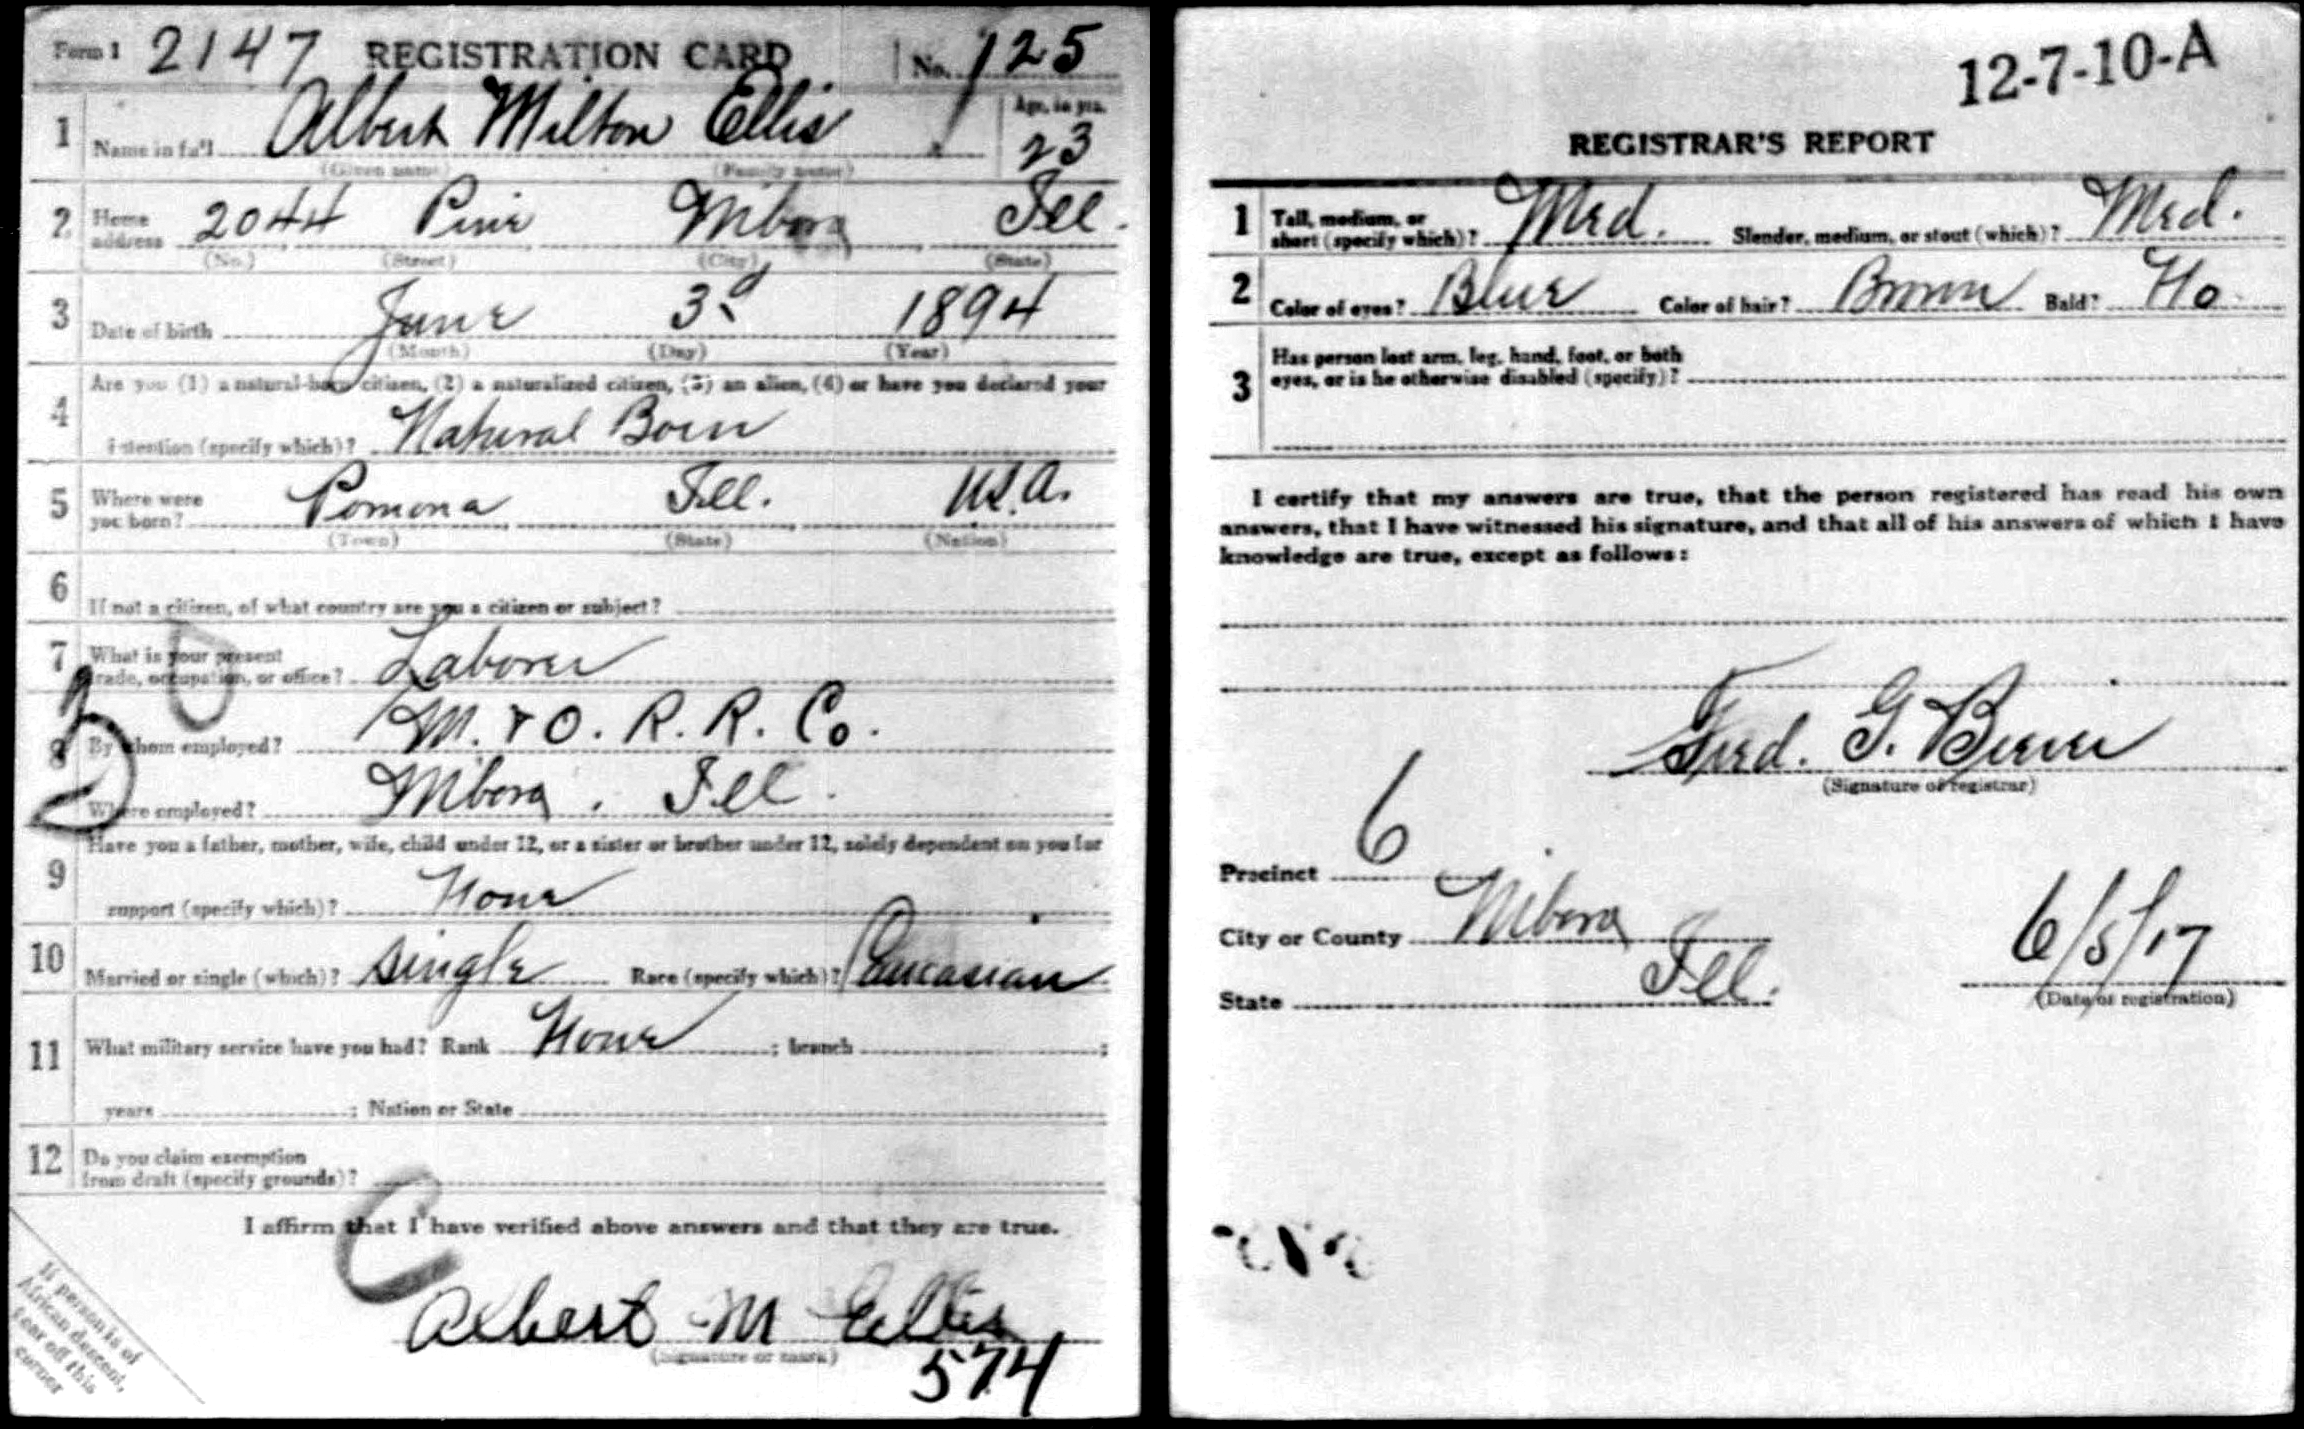 Form 1 2147 REGISTRATION CARD No. 125
1 Name in full Albert Milton Ellis Age, in yrs. 23
(Given name) (Family name)
2 Home address 2044 Pine M'boro Ill.
(No.) (Street) (City) (State)
3 Date of birth June 3d 1894
(Month) (Day) (Year)
4 Are you (1) a natural-born citizen, (2) a naturalized citizen, (3) an alien, (4) or have you declared your
intention (specify which)? Natural Born
5 Where were
you born? Pomona Ill. U.S.A.
(Town) (State) (Nation)
6 If not a citizen, of what country are you a citizen or subject?
7 What is your present
trade, occupation, or office? Laborer
8 By whom employed? M. & O. R. R. Co.
Where employed? M'boro, Ill.
Have you a father, mother, wife, child under 12, or a sister or brother under 12, solely dependent on you for
9 support (specify which)? None
10 Married or single (which)? Single Race (specify which)? Caucasian
11 What military service have you had? Rank None ; branch ;
years ; Nation or State
12 Do you claim exemption
from draft (specify grounds)?
I affirm that I have verified above answers and that they are true.
Albert M Ellis
(Signature or mark)
574
If person is of
African descent,
tear off this
corner
12-7-10-A
REGISTRAR'S REPORT
1 Tall, medium, or
short (specify which)? Med. Slender, medium, or stout (which)? Med.
2 Color of eyes? Blue Color of hair? Brown Bald? No
3 Has person lost arm, leg, hand, foot, or both
eyes, or is he otherwise disabled (specify)?
I certify that my answers are true, that the person registered has read his own
answers, that I have witnessed his signature, and that all of his answers of which I have
knowledge are true, except as follows:
Fred. G.
(Signature of registrar)
Precinct 6
City or County M'boro
State Ill. 6/5/17
(Date of registration)